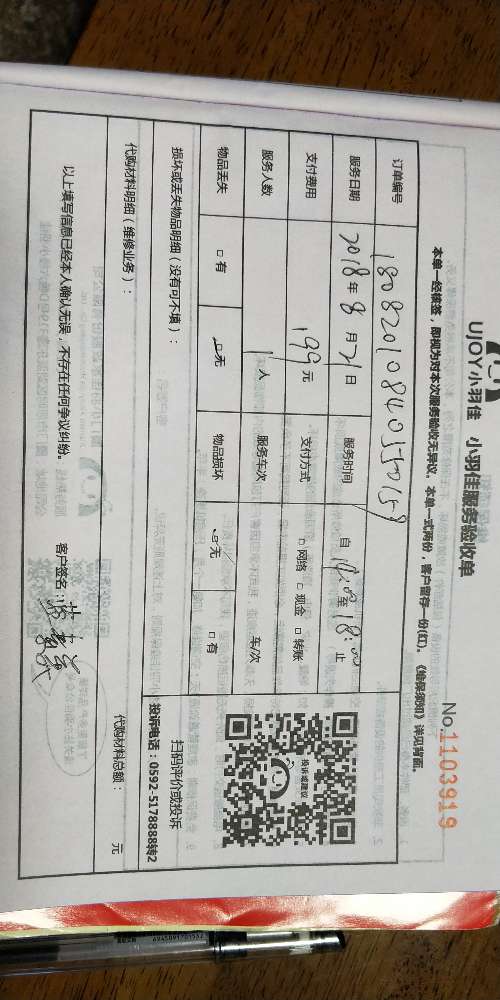 UJOY小羽佳 小羽佳服务验收单
No.1103919
本单一经核签，即视为对本次服务验收无异议。本单一式两份，客户留存一份(红)。《维保须知》详见背面。
订单编号 180820108403550159
服务日期 2018年8月21日 服务时间 自14:00至18:00止
支付费用 199元 支付方式 □网络 □现金 □转账
服务人数 1人 服务车次 车/次
物品丢失 □有 □无 物品损坏 □无 □有
投诉或建议
扫码评价或投诉
投诉电话：0592-5178888转2
损坏或丢失物品明细（没有可不填）：
代购材料明细（维修业务）：
代购材料总额： 元
以上填写信息已经本人确认无误，不存在任何争议纠纷。 客户签名：